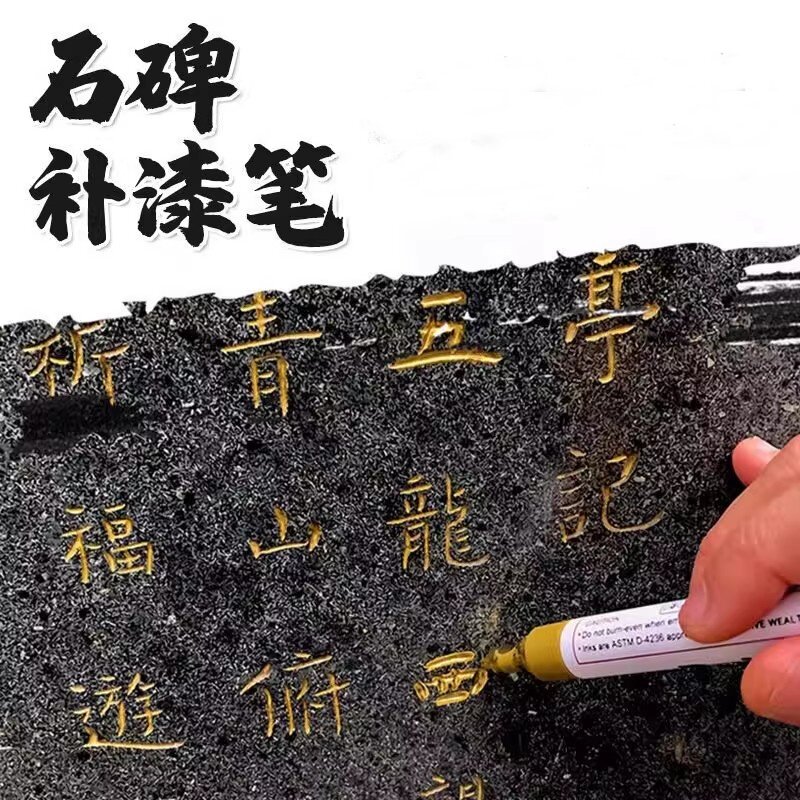 石碑
补漆笔
亭記
五龍西
青山俯
祈福遊
Do not burn-even when em
Inks are ASTM D-4236 appr
VE WEAL